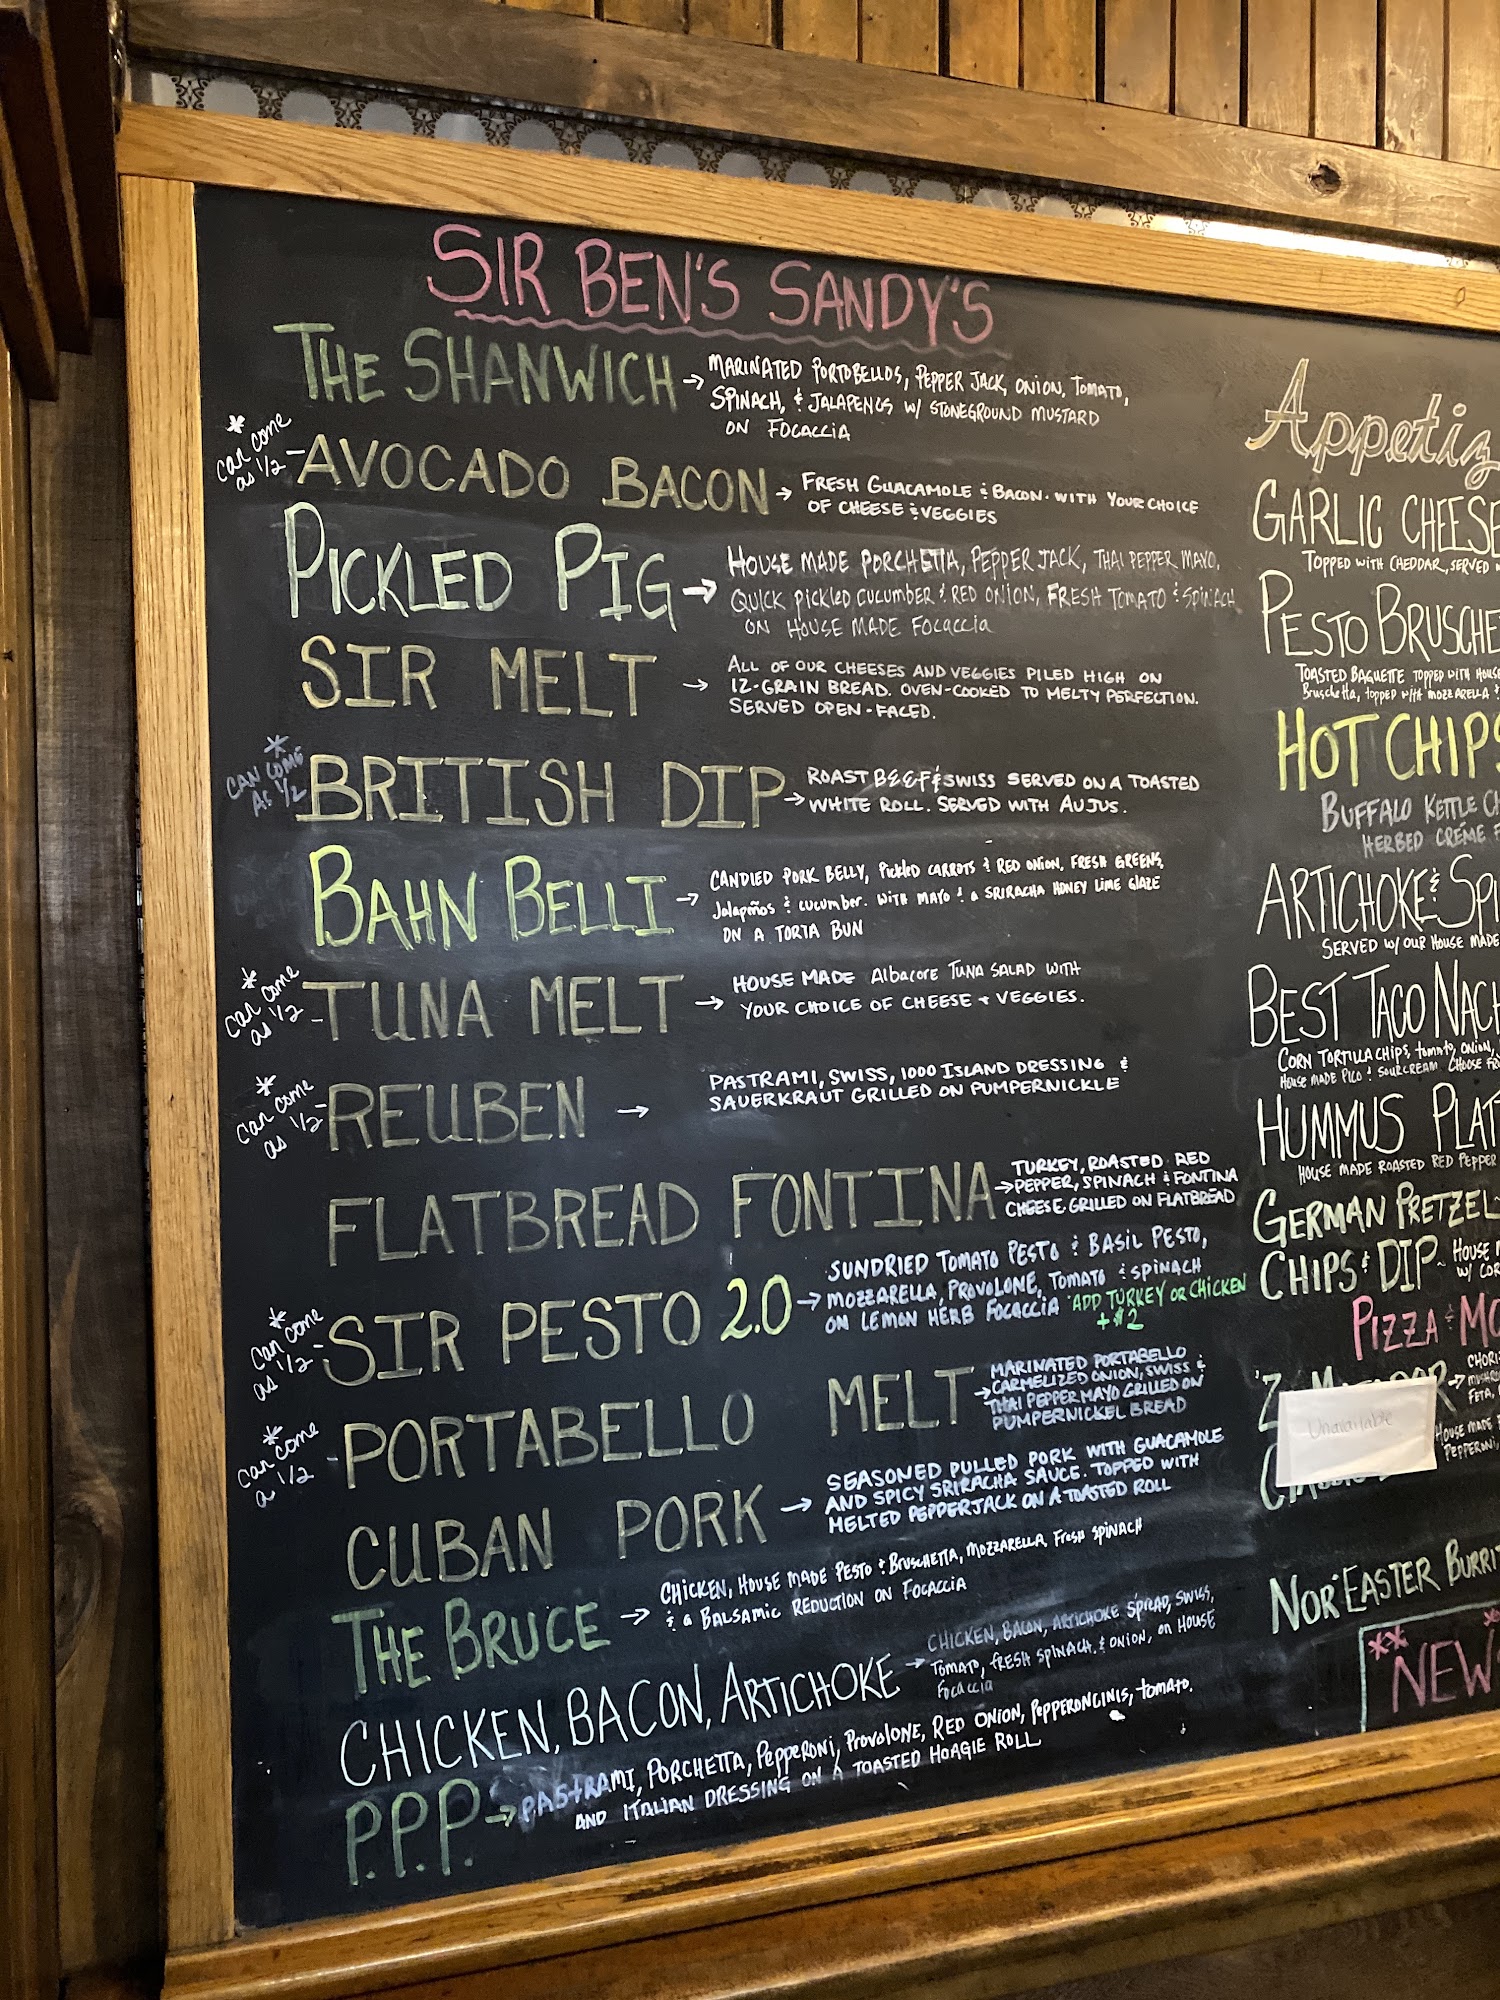 SIR BEN'S SANDY'S
THE SHANWICH → MARINATED PORTOBELLOS, PEPPER JACK, ONION, TOMATO,
SPINACH, & JALAPENOS W/ STONEGROUND MUSTARD
ON FOCACCIA
* can come as 1/2 - AVOCADO BACON → FRESH GUACAMOLE & BACON. WITH YOUR CHOICE
OF CHEESE & VEGGIES
PICKLED PIG → HOUSE MADE PORCHETTA, PEPPER JACK, THAI PEPPER MAYO,
QUICK PICKLED CUCUMBER & RED ONION, FRESH TOMATO & SPINACH
ON HOUSE MADE FOCACCIA
SIR MELT → ALL OF OUR CHEESES AND VEGGIES PILED HIGH ON
12-GRAIN BREAD. OVEN-COOKED TO MELTY PERFECTION.
SERVED OPEN-FACED.
* CAN COME AS 1/2 BRITISH DIP → ROAST BEEF & SWISS SERVED ON A TOASTED
WHITE ROLL. SERVED WITH AU JUS.
BAHN BELLI → CANDIED PORK BELLY, Pickled CARROTS & RED ONION, FRESH GREENS,
Jalapeños & cucumber. WITH MAYO & a SRIRACHA HONEY LIME GLAZE
ON A TORTA BUN
* can come as 1/2 - TUNA MELT → HOUSE MADE Albacore TUNA SALAD WITH
YOUR CHOICE OF CHEESE + VEGGIES.
* can come as 1/2 - REUBEN → PASTRAMI, SWISS, 1000 ISLAND DRESSING &
SAUERKRAUT GRILLED ON PUMPERNICKLE
FLATBREAD FONTINA → TURKEY, ROASTED RED
PEPPER, SPINACH & FONTINA
CHEESE GRILLED ON FLATBREAD
* can come as 1/2 - SIR PESTO 2.0 → SUNDRIED TOMATO PESTO & BASIL PESTO,
MOZZARELLA, PROVOLONE, TOMATO & SPINACH
ON LEMON HERB FOCACCIA *ADD TURKEY OR CHICKEN
+$2
* can come a 1/2 - PORTABELLO MELT → MARINATED PORTABELLO
CARMELIZED ONION, SWISS &
THAI PEPPER MAYO GRILLED ON
PUMPERNICKEL BREAD
CUBAN PORK → SEASONED PULLED PORK WITH GUACAMOLE
AND SPICY SRIRACHA SAUCE. TOPPED WITH
MELTED PEPPERJACK ON A TOASTED ROLL
THE BRUCE → CHICKEN, HOUSE MADE PESTO & BRUSCHETTA, MOZZARELLA, FRESH SPINACH
& a BALSAMIC REDUCTION ON FOCACCIA
CHICKEN, BACON, ARTICHOKE → CHICKEN, BACON, ARTICHOKE SPREAD, SWISS,
TOMATO, FRESH SPINACH & ONION, on HOUSE
FOCACCIA
P.P.P. → PASTRAMI, PORCHETTA, Pepperoni, Provolone, RED ONION, Pepperoncinis, tomato,
AND ITALIAN DRESSING ON A TOASTED HOAGIE ROLL
Appetiz
GARLIC CHEESE
TOPPED WITH CHEDDAR, SERVED
PESTO BRUSCHE
TOASTED BAGUETTE TOPPED WITH HOUSE
Bruschetta, topped with mozzarella &
HOT CHIPS
BUFFALO KETTLE C
HERBED CRÉME F
ARTICHOKE & SPI
SERVED W/ OUR HOUSE MADE
BEST TACO NACH
CORN TORTILLA CHIPS, tomato, ONION,
HOUSE MADE PICO & SOUR CREAM CHOOSE FRO
HUMMUS PLAT
HOUSE MADE ROASTED RED PEPPER
GERMAN PRETZEL
CHIPS & DIP - HOUSE
W/ COR
PIZZA & MO
'Z → CHORI
MUSHRO
FETA,
Unavailable
HOUSE MADE
Pepperoni,
NOR'EASTER BURRIT
** NEW *